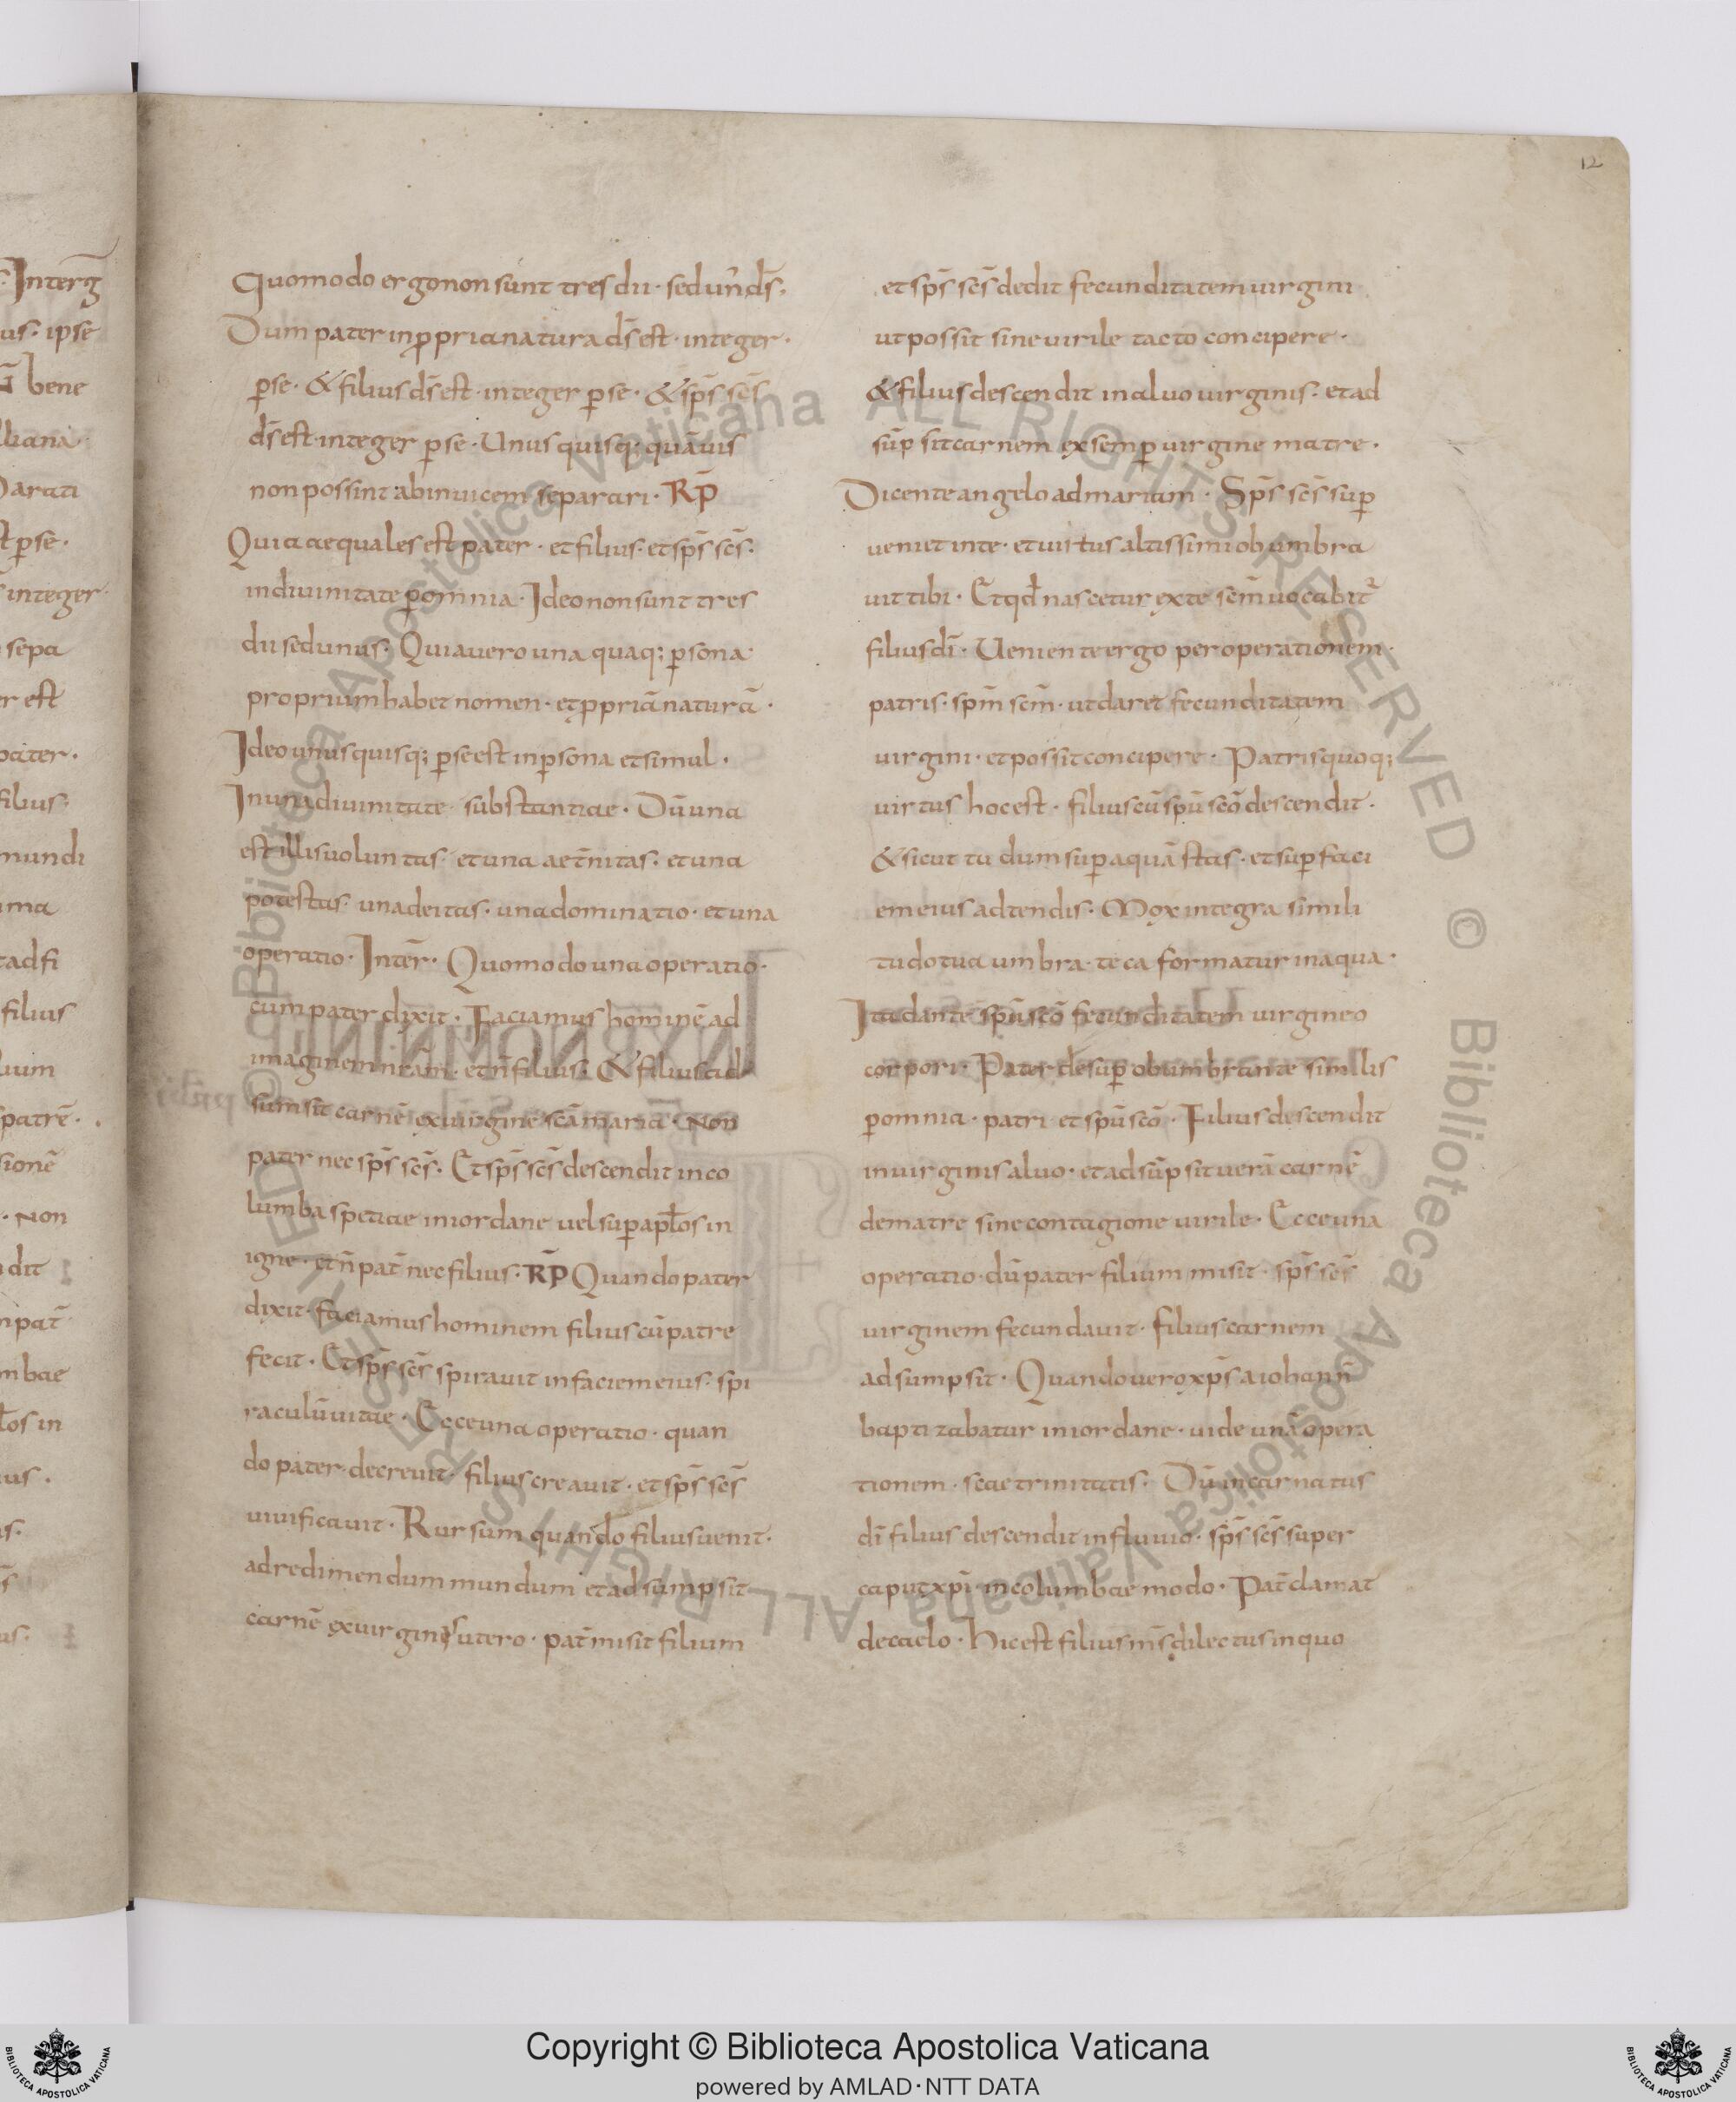 12
Quomodo ergo non sunt tres dii · sed un̄ ds̄ ·
Dum pater in ꝓpria natura ds̄ est · integer ·
ꝑ se · & filius ds̄ est · integer ꝑ se · & sp̄s sc̄s
ds̄ est integer ꝑ se · Unusquisq; quāuis
non possint ab inuicem separari · RP̄
Quia aequales est pater · et filius · et sp̄s sc̄s ·
in diuinitate ꝑ omnia · Ideo non sunt tres
dii sed unus · Quia uero una quaq; ꝑsona
proprium habet nomen · et ꝓpriā naturā ·
Ideo unusquisq; ꝑ se est in ꝑsona et simul ·
In una diuinitate substantiae · Dū una
est illis uoluntas · et una aet̄nitas · et una
potestas · una deitas · una dominatio · et una
operatio · Inter̄ · Quomodo una operatio ·
cum pater dixit · Faciamus hominē ad
imaginem nr̄am · et n̄ filius · & filius ad
sumsit carnē ex uirgine sc̄a maria · Non
pater nec sp̄s sc̄s · Et sp̄s sc̄s descendit in co
lumba speciae in iordane uel suꝑ apl̄os in
igne · et n̄ pat̄ nec filius · RP̄ Quando pater
dixit · faciamus hominem filius cū patre
fecit · Et sp̄s sc̄s spirauit in faciem eius · spi
raculū uitae · Ecce una operatio · quan
do pater decreuit · filius creauit · et sp̄s sc̄s
uiuificauit · Rursum quando filius uenit ·
ad redimendum mundum et adsumpsit
carnē ex uirginis utero · pat̄ misit filium
et sp̄s sc̄s dedit fecunditatem uirgini
ut possit sine uirile tacto concipere ·
& filius descendit in aluo uirginis · et ad
sūpsit carnem ex semꝑ uirgine matre ·
Dicente angelo ad mariam · Sp̄s sc̄s suꝑ
ueniet in te · et uirtus altissimi obumbra
uit tibi · Et qd̄ nascetur ex te sc̄m uocabit̄
filius dī · Ueniente ergo per operationem ·
patris · sp̄m sc̄m · ut daret fecunditatem
uirgini · et possit concipere · Patris quoq;
uirtus hoc est · filius cū sp̄u sc̄o descendit ·
& sicut tu dum suꝑ aquā stas · et suꝑ faci
em eius adtendis · Mox integra simili
tudo tua umbra teca formatur in aqua ·
Ita dante sp̄u sc̄o fecunditatem uirgineo
corpori · Pater desuꝑ obumbrante similis
ꝑ omnia · patri et sp̄u sc̄o · Filius descendit
in uirginis aluo · et adsūpsit uerā carnē
de matre sine contagione uirile · Ecce una
operatio · dū pater filium misit · sp̄s sc̄s
uirginem fecundauit · filius carnem
adsumpsit · Quando uero xp̄s a iohann̄
baptizabatur in iordane · uide unā opera
tionem · sc̄ae trinitatis · Dū incarnatus
dī filius descendit in fluuio · sp̄s sc̄s super
caput xp̄i in columbae modo · Pat̄ clamat
de caelo · Hic est filius ms̄ dilectus in quo
Copyright © Biblioteca Apostolica Vaticana
powered by AMLAD・NTT DATA